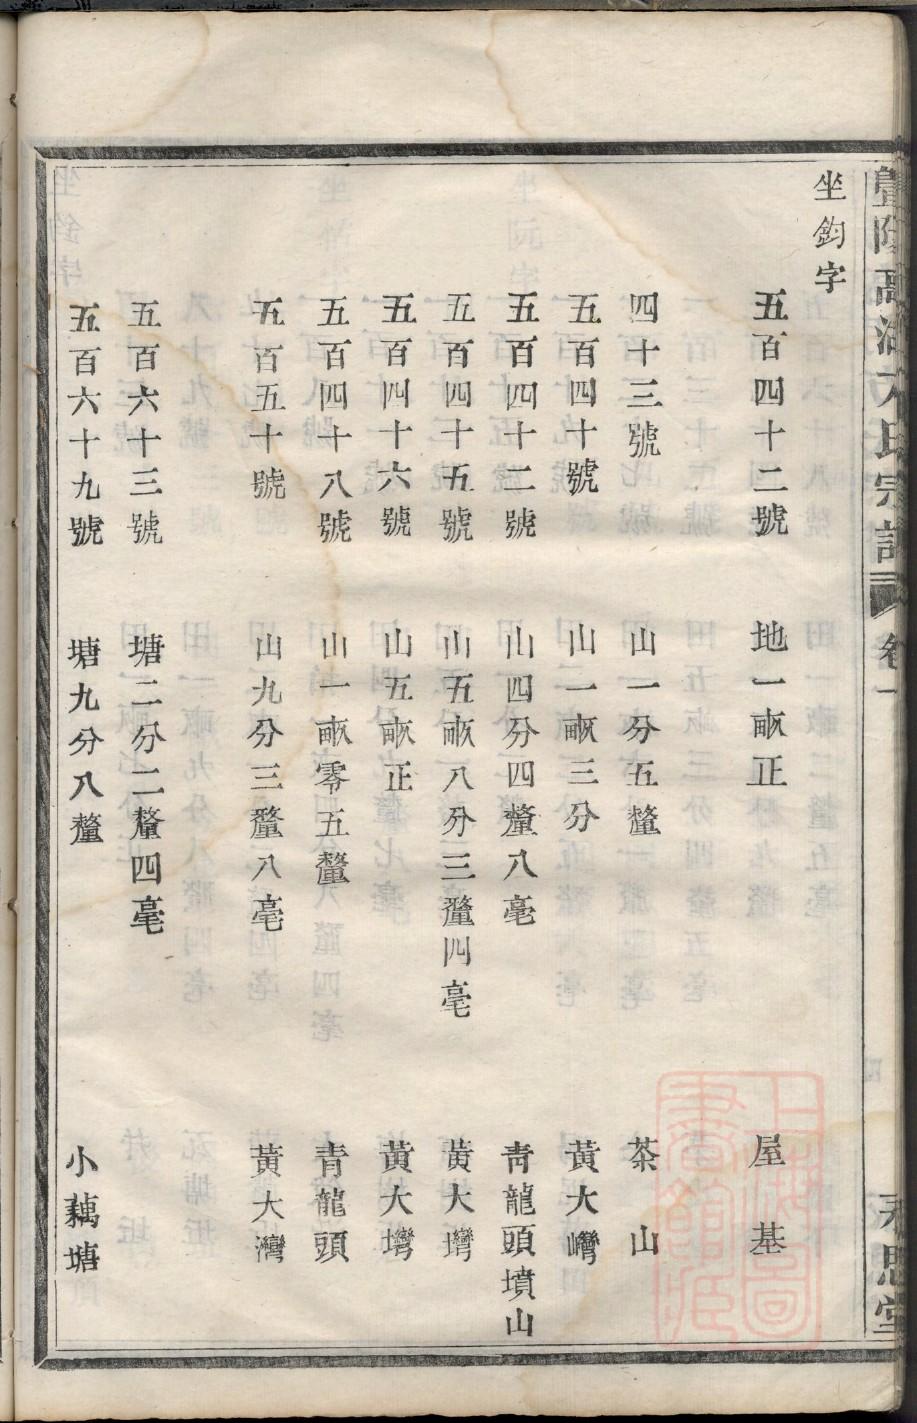 宗譜 卷一 永思堂
坐鈞字
五百四十二號 地一畝正 屋基
四十三號 山一分五釐 茶山
五百四十號 山一畝三分 黃大巒
五百四十二號 山四分四釐八毫 靑龍頭墳山
五百四十五號 山五畝八分三釐四毫 黃大塆
五百四十六號 山五畝正 黃大塆
五百四十八號 山一畝零五釐 青龍頭
五百五十號 山九分三釐八毫 黃大灣
五百六十三號 塘二分二釐四毫
五百六十九號 塘九分八釐 小藕塘